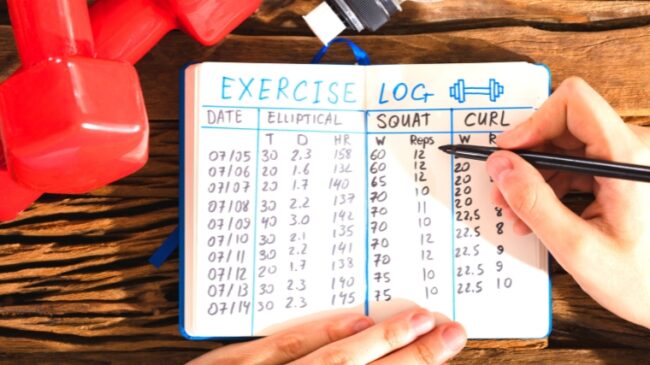 EXERCISE LOG
DATE ELLIPTICAL SQUAT CURL
T D HR W Reps W R
07/05 30 2.3 158 60 12
07/06 20 1.6 132 60 12 20
07/07 20 1.7 140 65 12 20
07/08 30 2.2 137 70 10 20
07/09 40 3.0 142 70 11 20
07/10 30 2.1 135 70 10 22,5 8
07/11 30 2.2 141 70 12 22.5 8
07/12 20 1.7 138 70 12 22.5 9
07/13 30 2.3 140 75 10 22.5 9
07/14 30 2.3 145 75 10 22.5 10